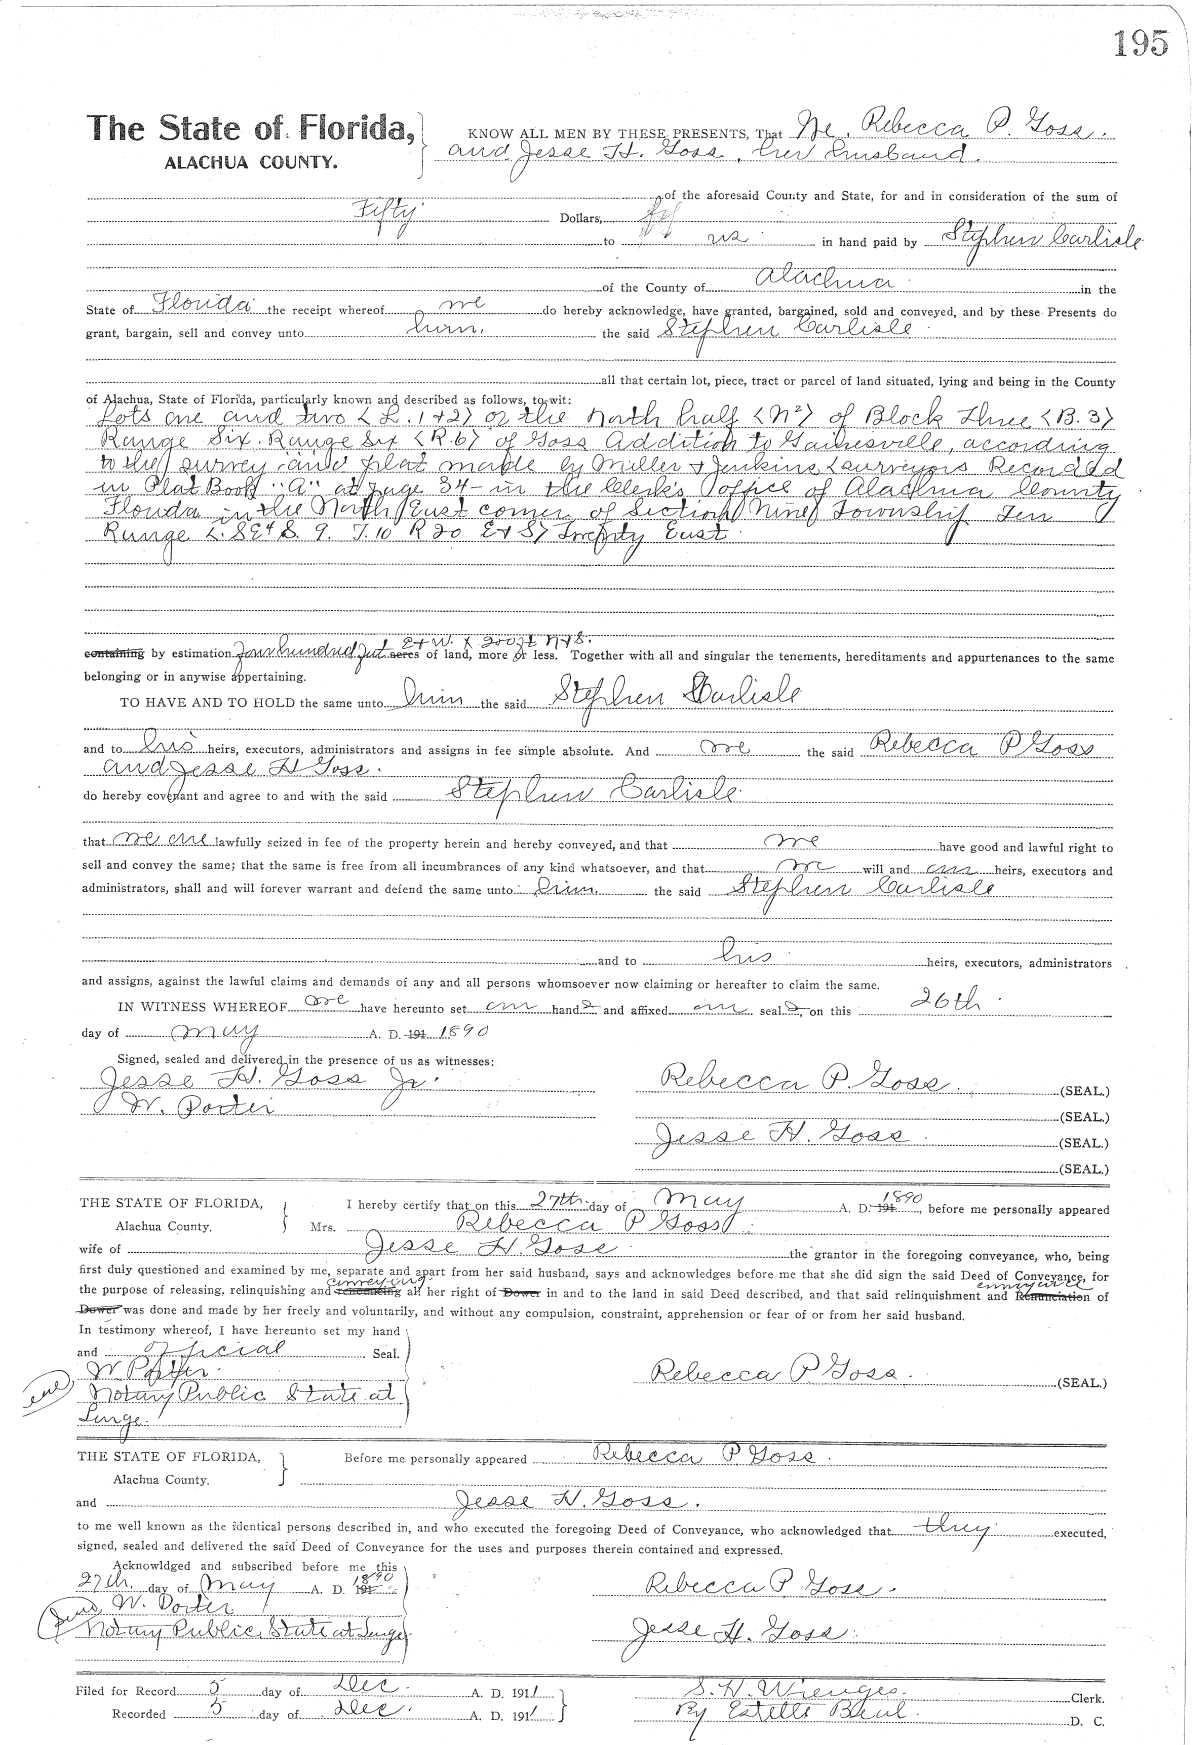 195
The State of Florida,
ALACHUA COUNTY.
KNOW ALL MEN BY THESE PRESENTS, That We, Rebecca P. Goss.
and Jesse H. Goss, her husband.
of the aforesaid County and State, for and in consideration of the sum of
Fifty Dollars,
to us in hand paid by Stephen Carlisle
of the County of Alachua in the
State of Florida the receipt whereof we do hereby acknowledge, have granted, bargained, sold and conveyed, and by these Presents do
grant, bargain, sell and convey unto him, the said Stephen Carlisle
all that certain lot, piece, tract or parcel of land situated, lying and being in the County
of Alachua, State of Florida, particularly known and described as follows, to-wit:
Lots one and two <L. 1+2> of the North half <N2> of Block three <B. 3>
Range Six. Range Six <R.6> of Goss Addition to Gainesville, according
to the survey and plat made by Miller & Jenkins surveyors Recorded
in Plat Book "A" at page 34 - in the Clerk's office of Alachua County
Florida in the North East corner of Section Nine Township Ten
Range S. 9. T. 10 R 20 E & S> Twenty East
E & W. x 200 ft N & S.
containing by estimation four hundred feet acres of land, more or less. Together with all and singular the tenements, hereditaments and appurtenances to the same
belonging or in anywise appertaining.
TO HAVE AND TO HOLD the same unto him the said Stephen Carlisle
and to his heirs, executors, administrators and assigns in fee simple absolute. And we the said Rebecca P Goss
and Jesse H Goss.
do hereby covenant and agree to and with the said Stephen Carlisle
that we are lawfully seized in fee of the property herein and hereby conveyed, and that we have good and lawful right to
sell and convey the same; that the same is free from all incumbrances of any kind whatsoever, and that we will and our heirs, executors and
administrators, shall and will forever warrant and defend the same unto him the said Stephen Carlisle
and to his heirs, executors, administrators
and assigns, against the lawful claims and demands of any and all persons whomsoever now claiming or hereafter to claim the same.
IN WITNESS WHEREOF we have hereunto set our hands and affixed our seals, on this 26th
day of May A. D. 191 1890
Signed, sealed and delivered in the presence of us as witnesses:
Jesse H. Goss Jr.
W. Porter
Rebecca P. Goss. (SEAL.)
(SEAL.)
Jesse H. Goss (SEAL.)
(SEAL.)
THE STATE OF FLORIDA,
Alachua County.
I hereby certify that on this 27th day of May A. D. 191 1890, before me personally appeared
Mrs. Rebecca P Goss
wife of Jesse H Goss the grantor in the foregoing conveyance, who, being
first duly questioned and examined by me, separate and apart from her said husband, says and acknowledges before me that she did sign the said Deed of Conveyance, for
conveying conveyance
the purpose of releasing, relinquishing and renouncing all her right of Dower in and to the land in said Deed described, and that said relinquishment and Renunciation of
Dower was done and made by her freely and voluntarily, and without any compulsion, constraint, apprehension or fear of or from her said husband.
In testimony whereof, I have hereunto set my hand
and official Seal.
W Porter.
Notary Public State at
Large.
Rebecca P Goss. (SEAL.)
THE STATE OF FLORIDA,
Alachua County.
Before me personally appeared Rebecca P. Goss.
and Jesse H. Goss.
to me well known as the identical persons described in, and who executed the foregoing Deed of Conveyance, who acknowledged that they executed,
signed, sealed and delivered the said Deed of Conveyance for the uses and purposes therein contained and expressed.
Acknowldged and subscribed before me this
27th. day of May A. D. 191 1890
W. Porter
Notary Public, State at Large
Rebecca P. Goss.
Jesse H. Goss.
Filed for Record 5 day of Dec. A. D. 1911
Recorded 5 day of Dec. A. D. 1911
S. H. Wienges. Clerk.
By Estelle D. C.